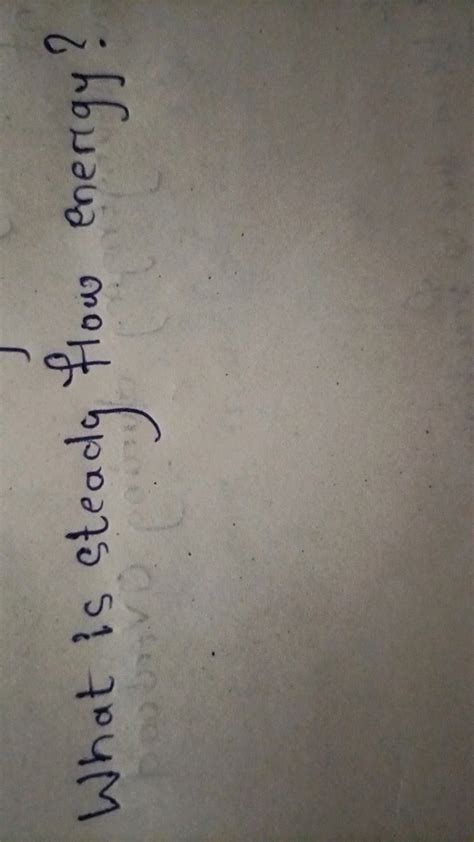 What is steady flow energy?